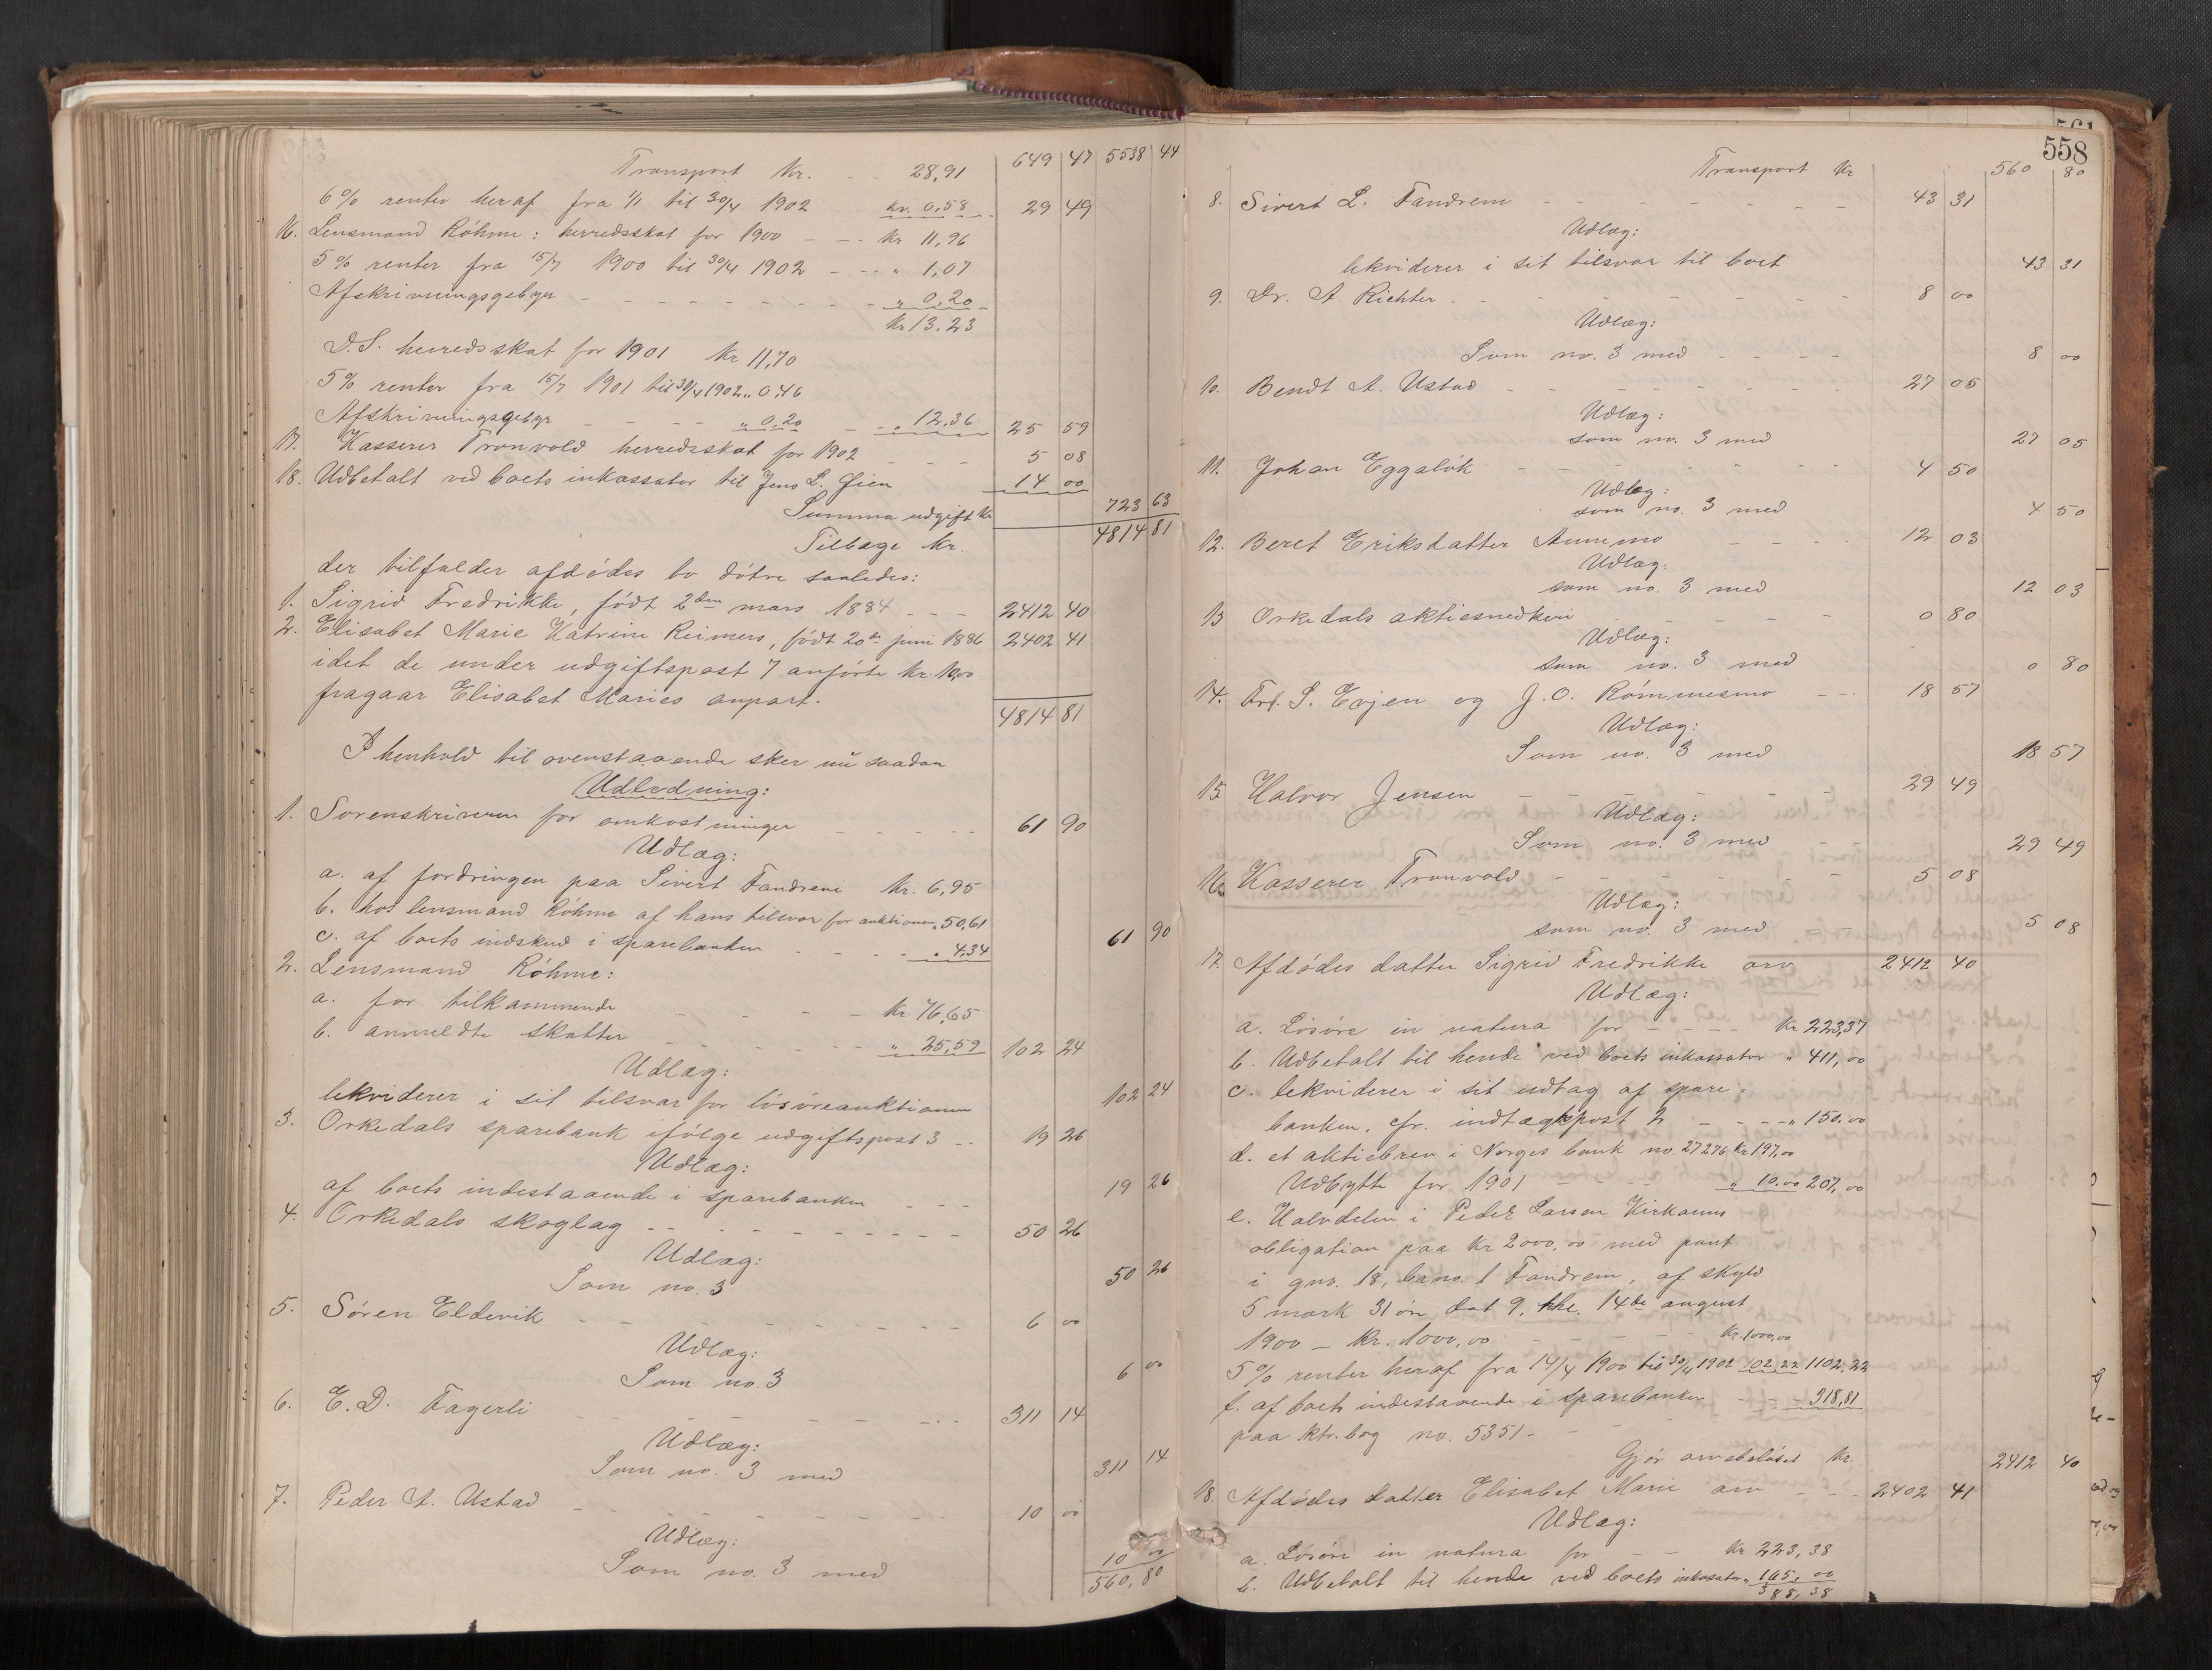 Transport Kr. - - 28,91 649 47 5538 44
6% renter heraf fra 1/1 til 30/4 1902 kr. 0,58 29 49
16. Lensmand Röhme: herredsskat for 1900 - - - Kr 11,96
5% renter fra 15/7 1900 til 30/4 1902 - - - " 1,07
Afskrivningsgebyr - - - - - - - - - " 0,20
Kr 13.23
D.S. herredsskat for 1901 Kr 11,70
5% renter fra 15/7 1901 til 30/4 1902 " 0,46
Afskrivningsgebyr - - - - " 0,20 - - " 12,36 25 59
17. Kasserer Tronvold herredsskat for 1902 - - - 5 08
18. Udbetalt ved boets inkassator til Jens L. Gien 14 00
Summa udgift Kr 723 63
Tilbage Kr. 4814 81
der tilfalder afdødes to døtre saaledes:
1. Sigrid Fredrikke, født 2den mars 1884 - - - 2412 40
2. Elisabet Marie Katrine Reimers, født 20de juni 1886 2402 41
idet de under udgiftspost 7 anførte kr. 10,00
fragaar Elisabet Maries anpart.
4814 81
I henhold til ovenstaaende sker nu saadan
Udlodning:
1. Sorenskriveren for omkostninger - - - - - 61 90
Udlæg:
a. af fordringen paa Sivert Fandrem Kr. 6,95
b. hos lensmand Röhme af hans tilsvar for auktionen " 50,61
c. af boets indskud i sparebanken - - - - " 4,34 61 90
2. Lensmand Röhme:
a. for tilkommende - - - - Kr. 76,65
b. anmeldte skatter - - - - - - " 25,59 102 24
Udlæg:
lekviderer i sit tilsvar for løsøreauktionen 102 24
3. Orkedals sparebank ifølge udgiftspost 3 - - 19 26
Udlæg:
af boets indestaaende i sparebanken - - - 19 26
4. Orkedals skoglag - - - - - - - - - - 50 26
Udlæg:
Som no. 3 50 26
5. Søren Eldevik - - - - - - - - - - 6 00
Udlæg:
Som no. 3 6 00
6. E. D. Fagerli - - - - - - - - - - 311 14
Udlæg:
Som no. 3 med 311 14
7. Peder A. Ustad - - - - - - - - - 10 00
Udlæg:
Som no. 3 med 10 00
560,80
558
Transport Kr 560 80
8. Sivert L. Fandrem - - - - - - - - 43 31
Udlæg:
lekviderer i sit tilsvar til boet 43 31
9. Dr. A. Richter - - - - - - - - - 8 00
Udlæg:
Som no. 3 med - - - - 8 00
10. Bendt A. Ustad - - - - - - - - 27 05
Udlæg:
som no. 3 med 27 05
11. Johan Eggsløk - - - - - - - - 4 50
Udlæg:
som no. 3 med 4 50
12. Beret Eriksdatter Aunemo - - - - 12 03
Udlæg:
som no. 3 med 12 03
13 Orkedals aktiesnedkeri - - - - - - 0 80
Udlæg:
som no. 3 med 0 80
14. S. Evjen og J. O. Rømmesmo - - - 18 57
Udlæg:
Som no. 3 med 18 57
15. Halvor Jensen - - - - - - - - 29 49
Udlæg:
Som no. 3 med - 29 49
16. Kasserer Tronvold - - - - - - - 5 08
Udlæg:
som no. 3 med - 5 08
17. Afdødes datter Sigrid Fredrikke arv 2412 40
Udlæg:
a. Løsøre in natura for - - - - Kr 223,37
b. Udbetalt til hende ved boets inkassator " 411,00
c. lekviderer i sit udtag af spare-
banken, cfr. indtægtspost 2 - - - - " 150.00
d. et aktiebrev i Norges bank no. 27276 Kr 197,00
Udbytte for 1901 - - - - " 10.00 207,00
e. Halvdelen i Peder Larsen Kirkaunes
obligation paa Kr 2000,00 med pant
i gnr. 18, brno. 1 Fandrem, af skyld
5 mark 31 øre dat 9, thl. 14de august
1900 - Kr. 1000,00 - - - - - Kr. 1000,00
5% renter heraf fra 14/4 1900 til 30/4 1902 102,22 1102.22
f. af boets indestaaende i sparebanken - - - 318,81
paa ktr.bog no. 5351 -
Gjør arvebeløbet Kr. 2412 40
18. Afdødes datter Elisabet Marie arv - - - 2402 41
Udlæg:
a. Løsøre in natura for - - Kr 223,38
b. Udbetalt til hende ved boets inkassator " 165,00
388,38